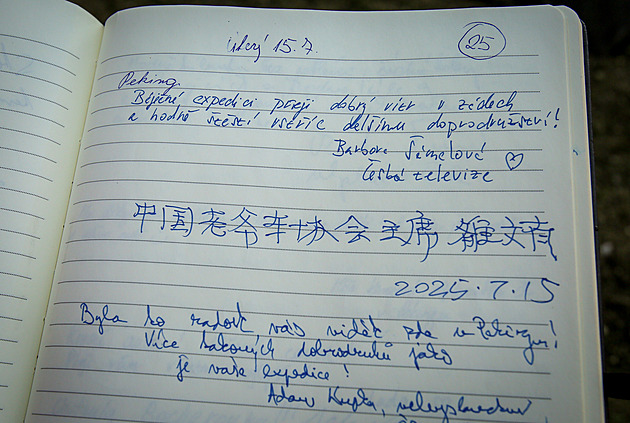 Úterý 15.7.
25
Peking.
Báječné expedici přeji dobrý vítr v zádech
a hodně štěstí vstříc dalšímu dobrodružství!
Barbora Šámalová
Česká televize
中国老爷车协会主席 雒文有
2025.7.15
Byla to radost vás vidět zde v Pekingu!
Více takových dobrodruhů jako
je vaše expedice!
Adam Krupka, velvyslanectví,